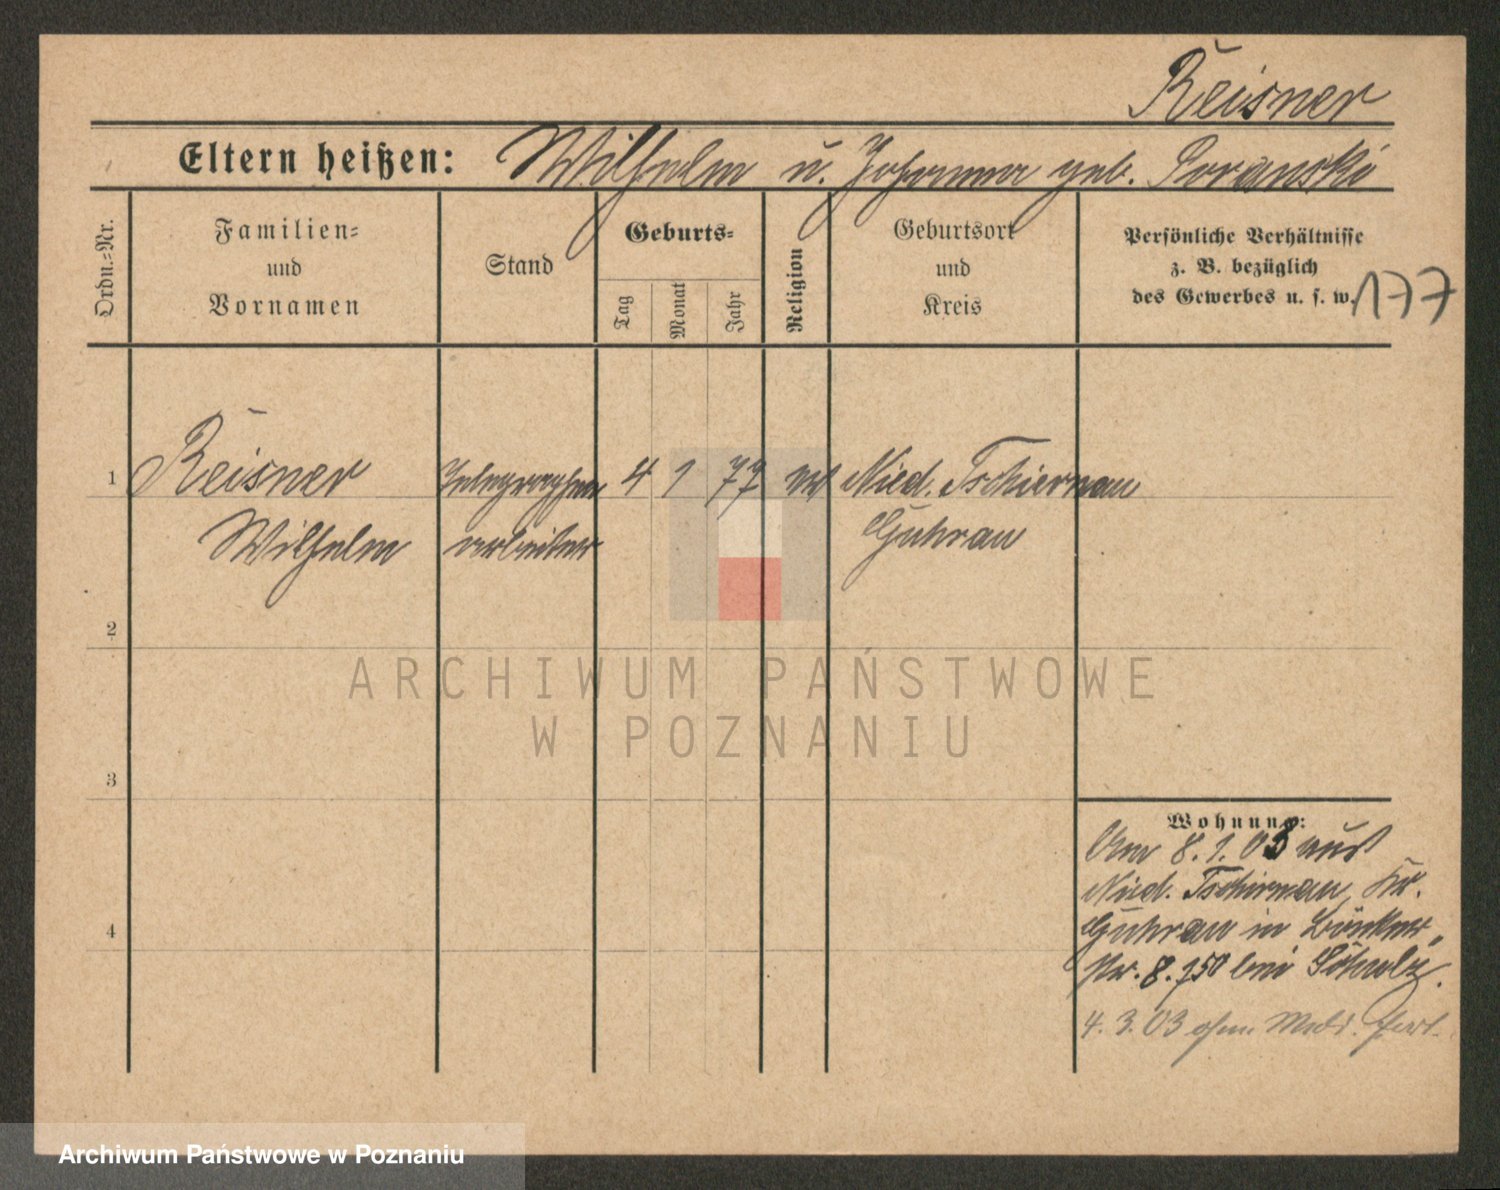 Reisner
Eltern heißen: Wilhelm u. Johanna geb. Poranski
Ordn.-Nr.
Familien-
und
Vornamen
Stand
Geburts-
Tag
Monat
Jahr
Religion
Geburtsort
und
Kreis
Persönliche Verhältnisse
z. B. bezüglich
des Gewerbes u. s. w.
177
1 Reisner Telegraphen 4 1 77 ev Nied. Tschiernau
Wilhelm arbeiter Guhrau
2
3
4
Wohnung:
Am 8.1.03 aus
Nied. Tschirnau, Kr.
Guhrau in
8. bei Schulz.
4.3.03 ohne Meld. fort.
ARCHIWUM PAŃSTWOWE
W POZNANIU
Archiwum Państwowe w Poznaniu